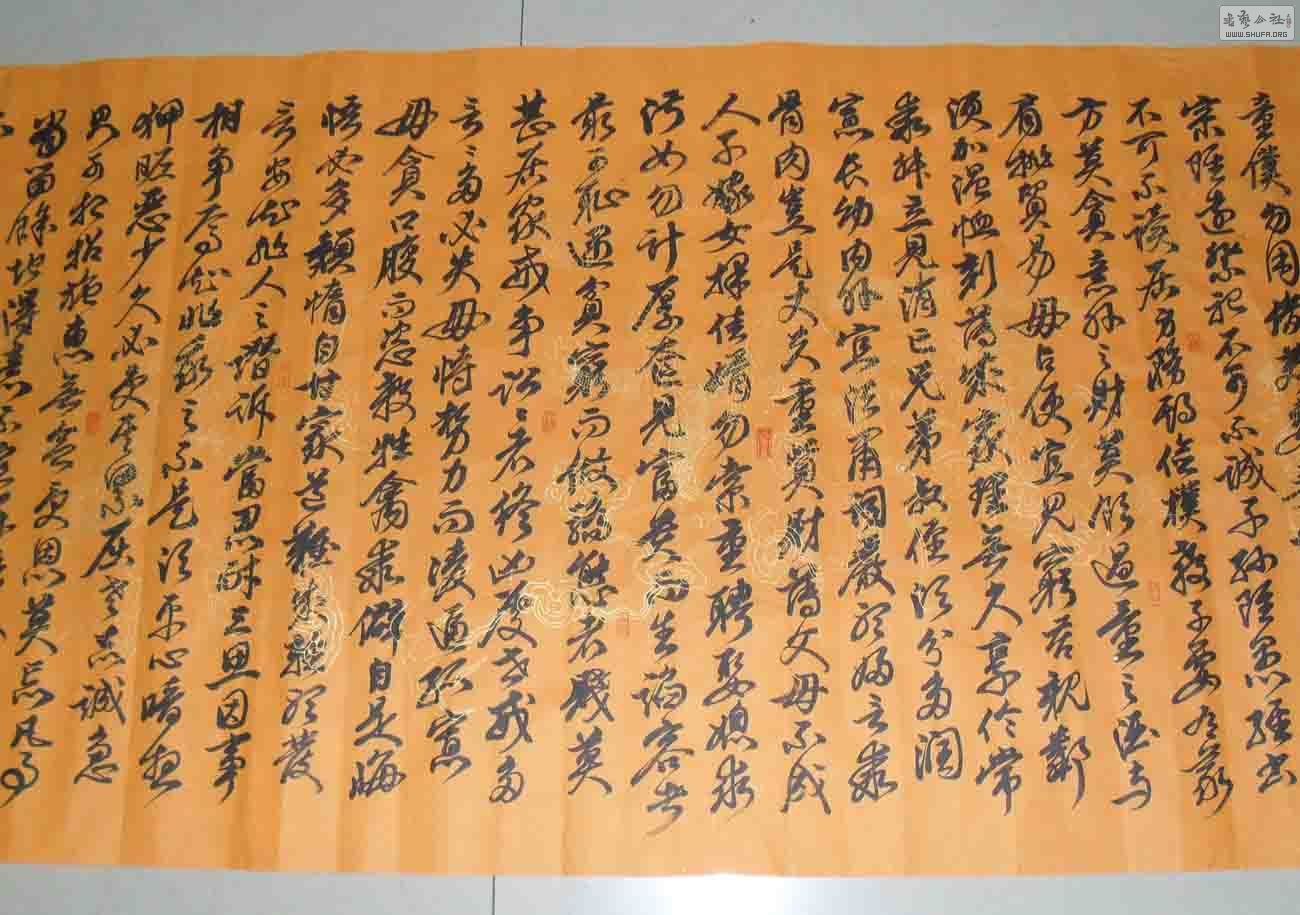 童僕勿用俊美
宗雖遠祭祀不可不誠子孫雖愚經書
不可不讀居身務期儉樸教子要有義
方莫貪意外之財莫飲過量之酒與
肩挑貿易毋占便宜見窮苦親鄰
須加溫恤刻薄成家理無久享倫常
乖舛立見消亡兄弟叔侄須分多潤
寡長幼內外宜法肅詞嚴聽婦言乖
骨肉豈是丈夫重資財薄父母不成
人子嫁女擇佳婿勿索重聘娶媳求
淑女勿計厚奩見富貴而生諂容者
最可恥遇貧窮而作驕態者賤莫
甚居家戒爭訟訟者終凶處世戒多
言言多必失毋恃勢力而凌逼孤寡
毋貪口腹而恣殺牲禽乖僻自是悔
悟必多頹惰自甘家道難成輕聽發
言安知非人之譖訴當忍耐三思因事
相爭焉知非我之不是須平心暗想
狎昵惡少久必受其累屈志老誠急
則可相招施惠無念受恩莫忘凡事
當留餘地得意不宜再
書藝公社
WWW.SHUFA.ORG